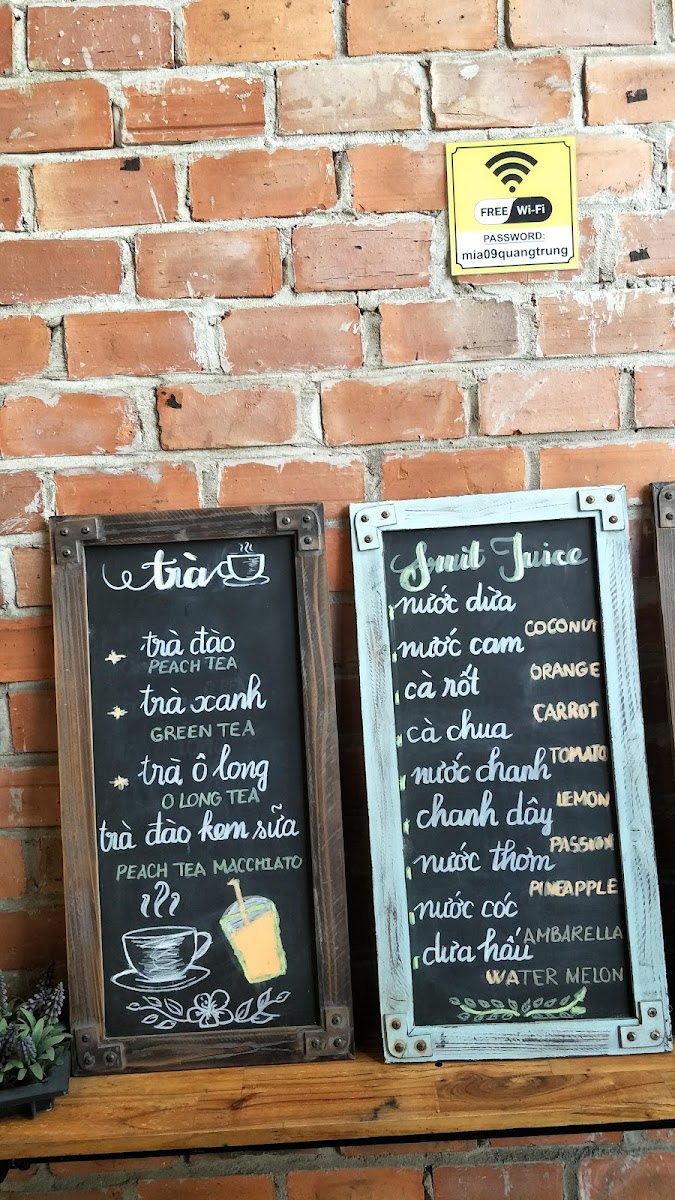 FREE Wi-Fi
PASSWORD:
mia09quangtrung
trà
trà đào
PEACH TEA
trà xanh
GREEN TEA
trà ô long
O LONG TEA
trà đào kem sữa
PEACH TEA MACCHIATO
Fruit Juice
nước dừa
COCONUT
nước cam
ORANGE
cà rốt
CARROT
cà chua
TOMATO
nước chanh
LEMON
chanh dây
PASSION
nước thơm
PINEAPPLE
nước cóc
AMBARELLA
dưa hấu
WATER MELON